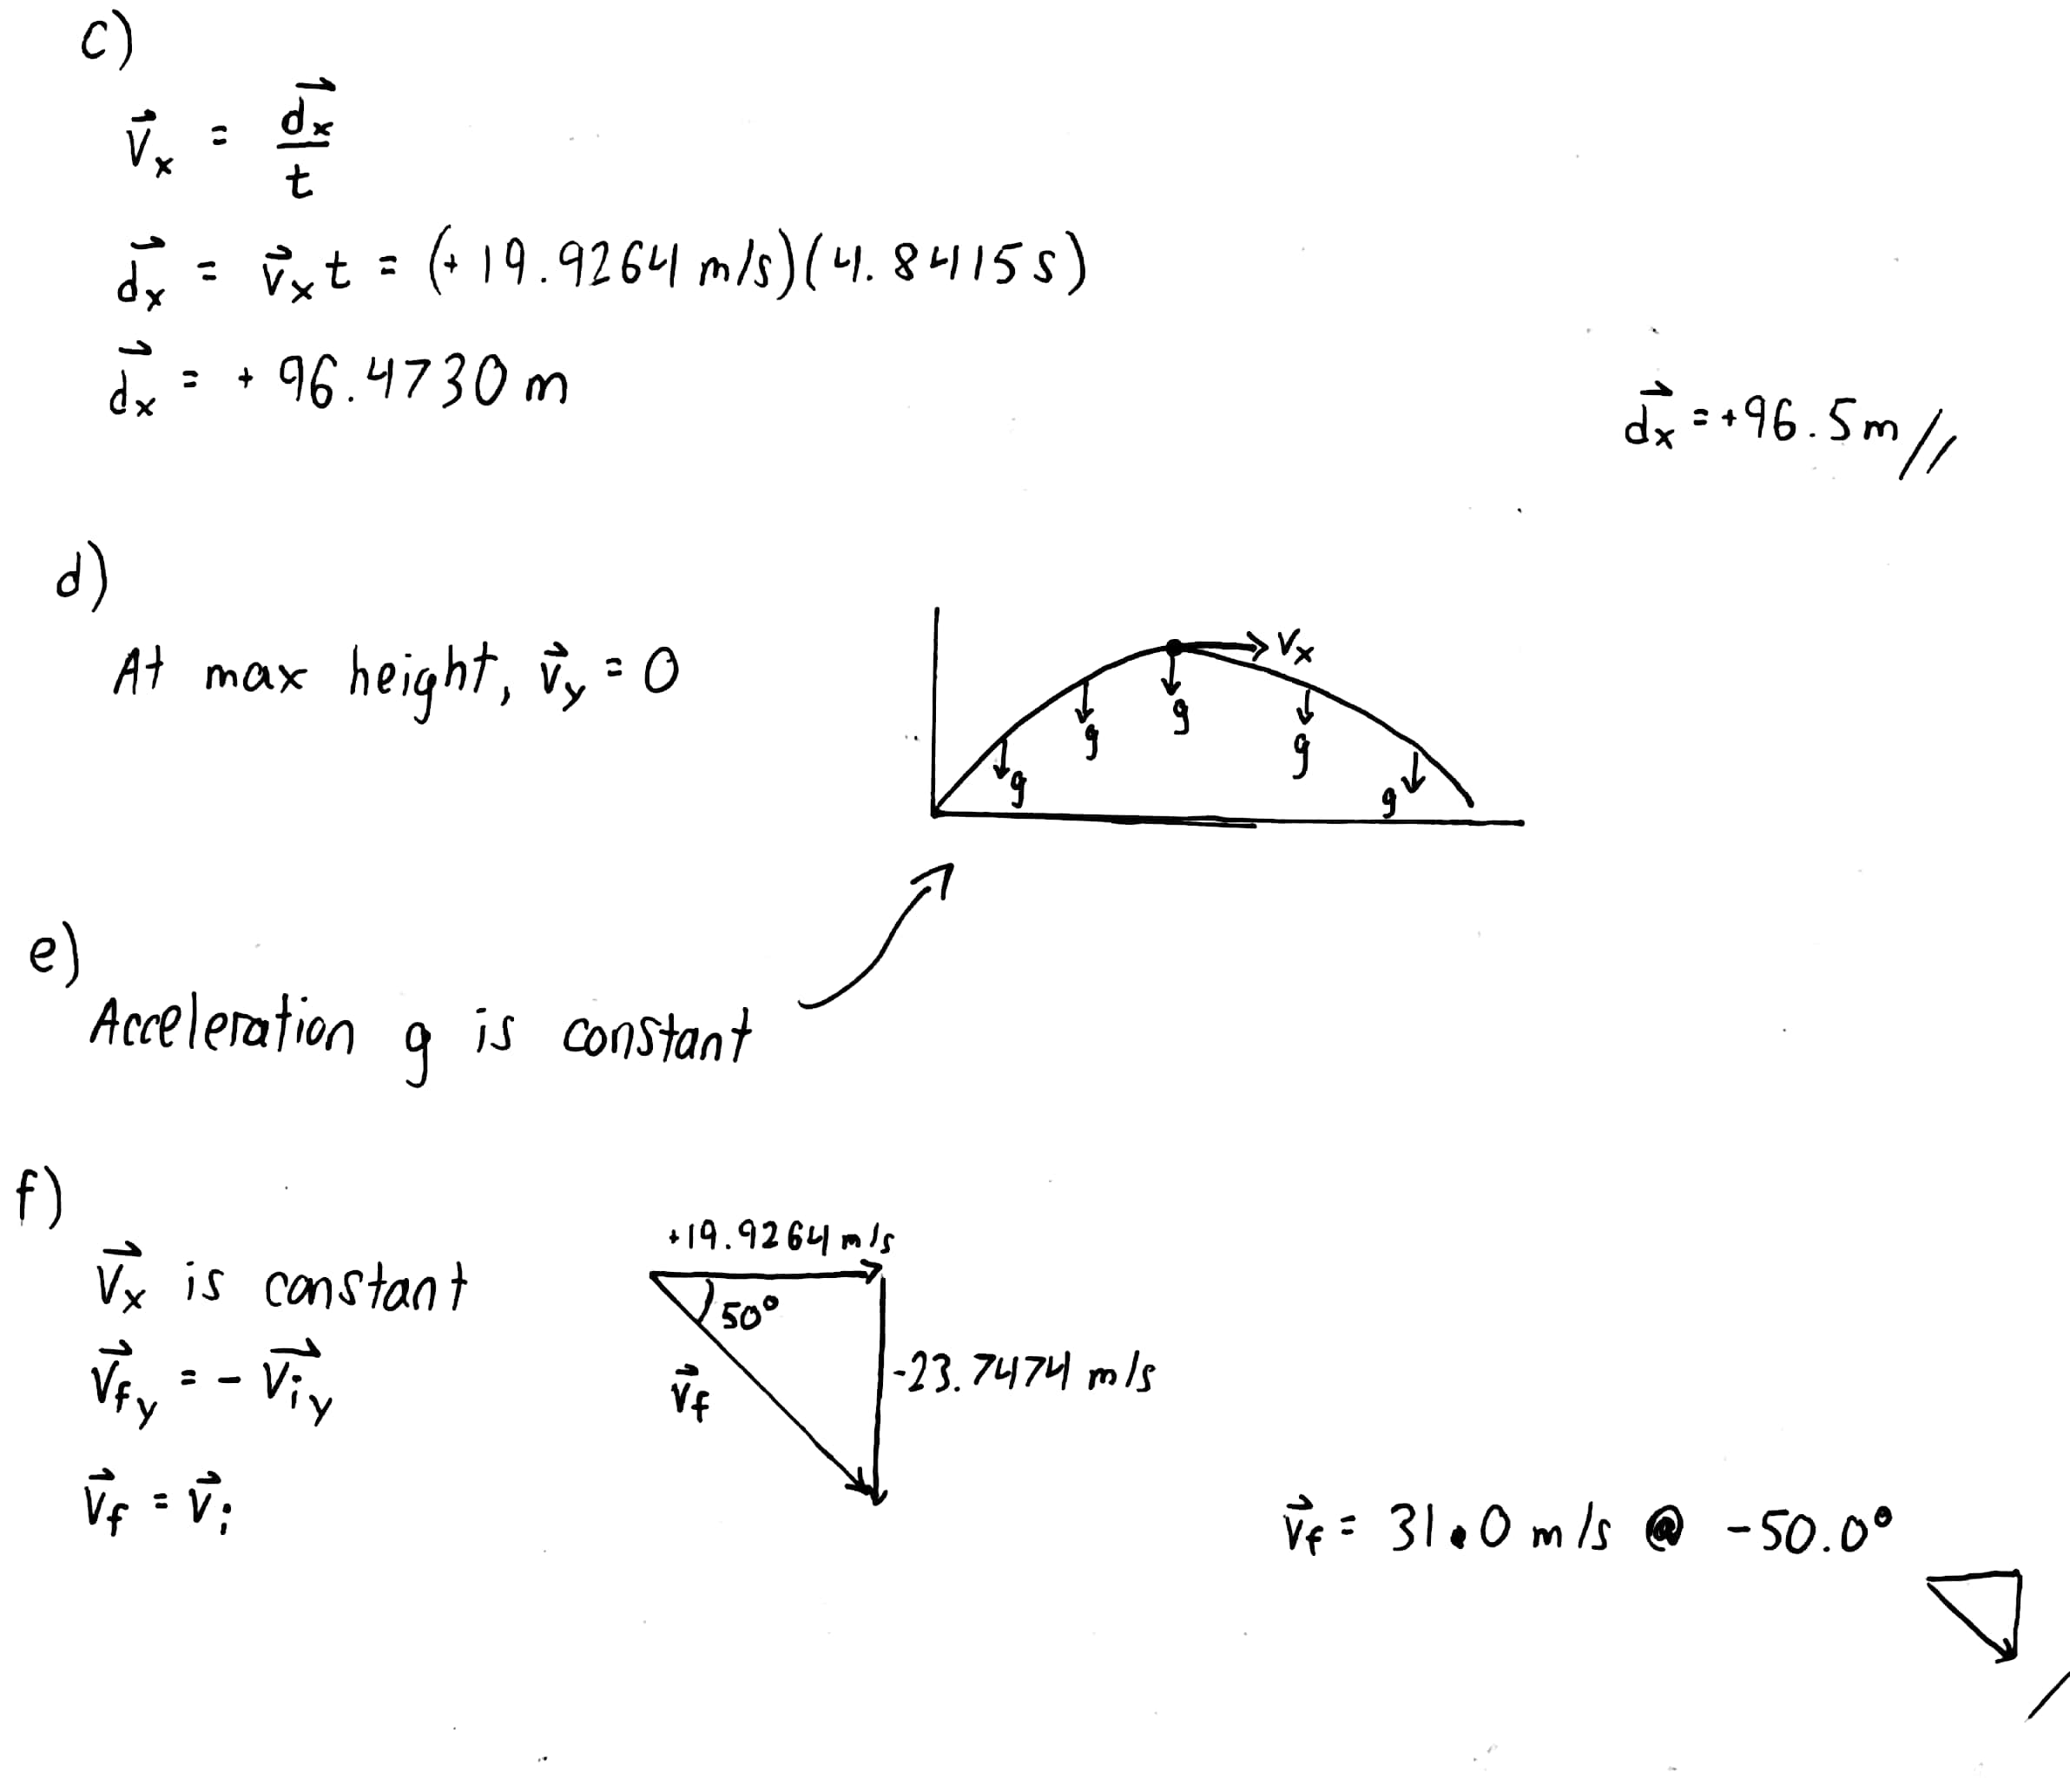 c)
v⃗ₓ = d⃗ₓ / t
d⃗ₓ = v⃗ₓ t = (+19.9264 m/s)(4.8415 s)
d⃗ₓ = +96.4730 m
d⃗ₓ = +96.5 m //
d)
At max height, v⃗_y = 0
vₓ
g
g
g
g
g
e)
Acceleration g is constant
f)
+19.9264 m/s
v⃗ₓ is constant
50°
v⃗_fy = - v⃗_iy
v⃗_f
-23.7474 m/s
v⃗_f = v⃗_i
v⃗_f = 31.0 m/s @ -50.0°